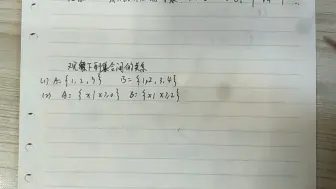 观察下列集合间的关系
(1) A={1, 2, 4} B={1,2, 3, 4}
(2) A={x|x≥0} B={x|x≥2}